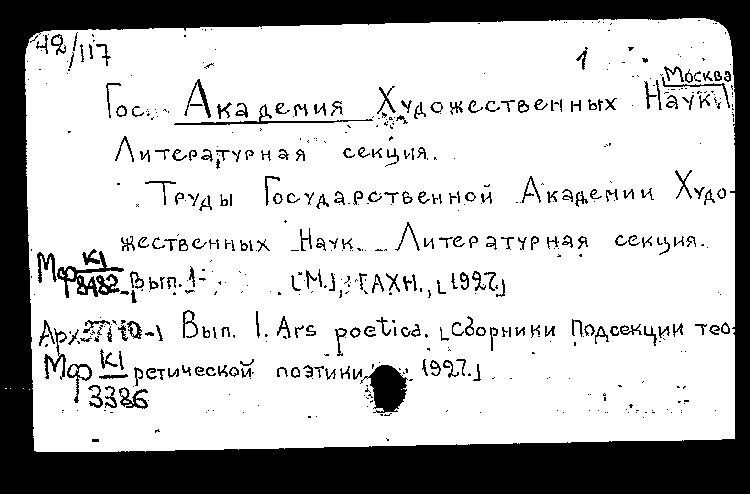 42/117
1
Москва
Гос. Академия Художественных Наук
Литературная секция.
Труды Государственной Академии Худо-
жественных Наук. Литературная секция.
Мф К1/8482 Вып. 1- [М.], ГАХН, [1927.]
Вып. 1. Ars poetica. [Сборники Подсекции тео-
Мф К1/3386 ретической поэтики 1927.]